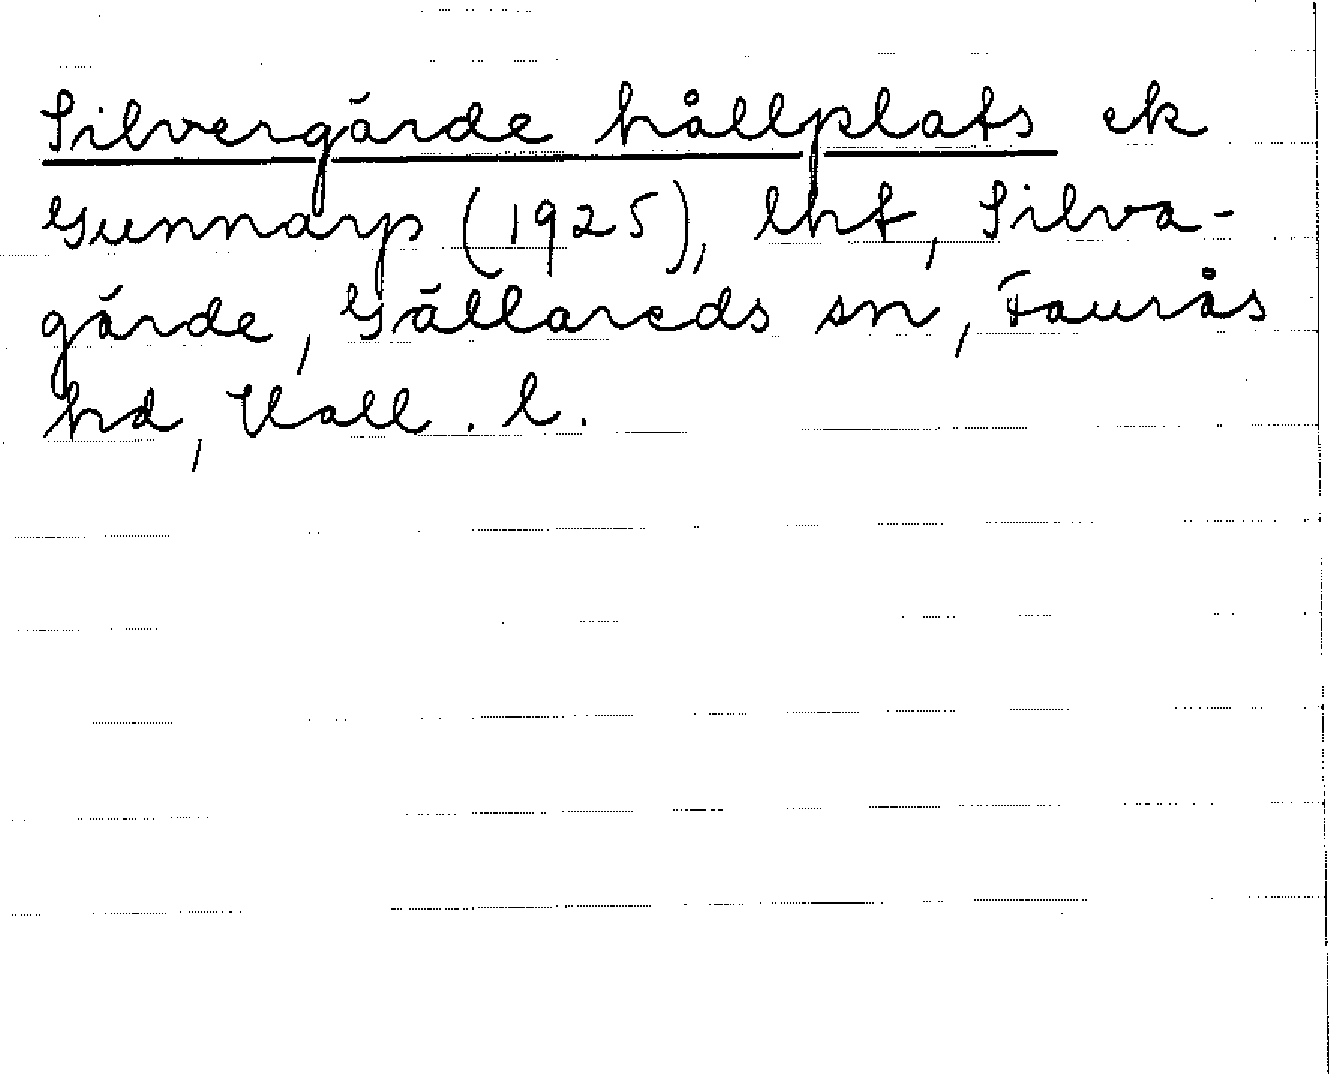 Silvergärde hållplats ek
Gunnarp (1925), lht, Silva-
gärde, Gällareds sn, Faurås
hd, Hall. l.